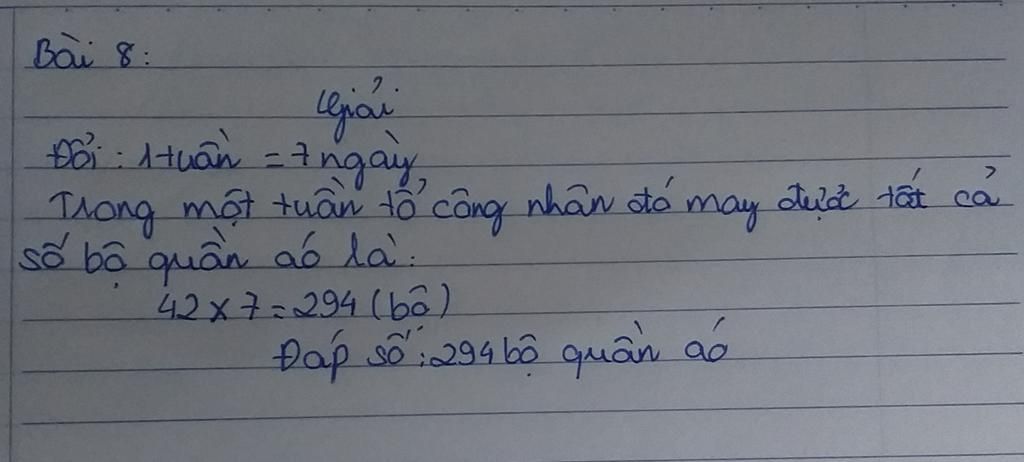 Bài 8:
Giải
Đổi: 1 tuần = 7 ngày
Trong một tuần tổ công nhân đó may được tất cả
số bộ quần áo là:
42 x 7 = 294 (bộ)
Đáp số: 294 bộ quần áo